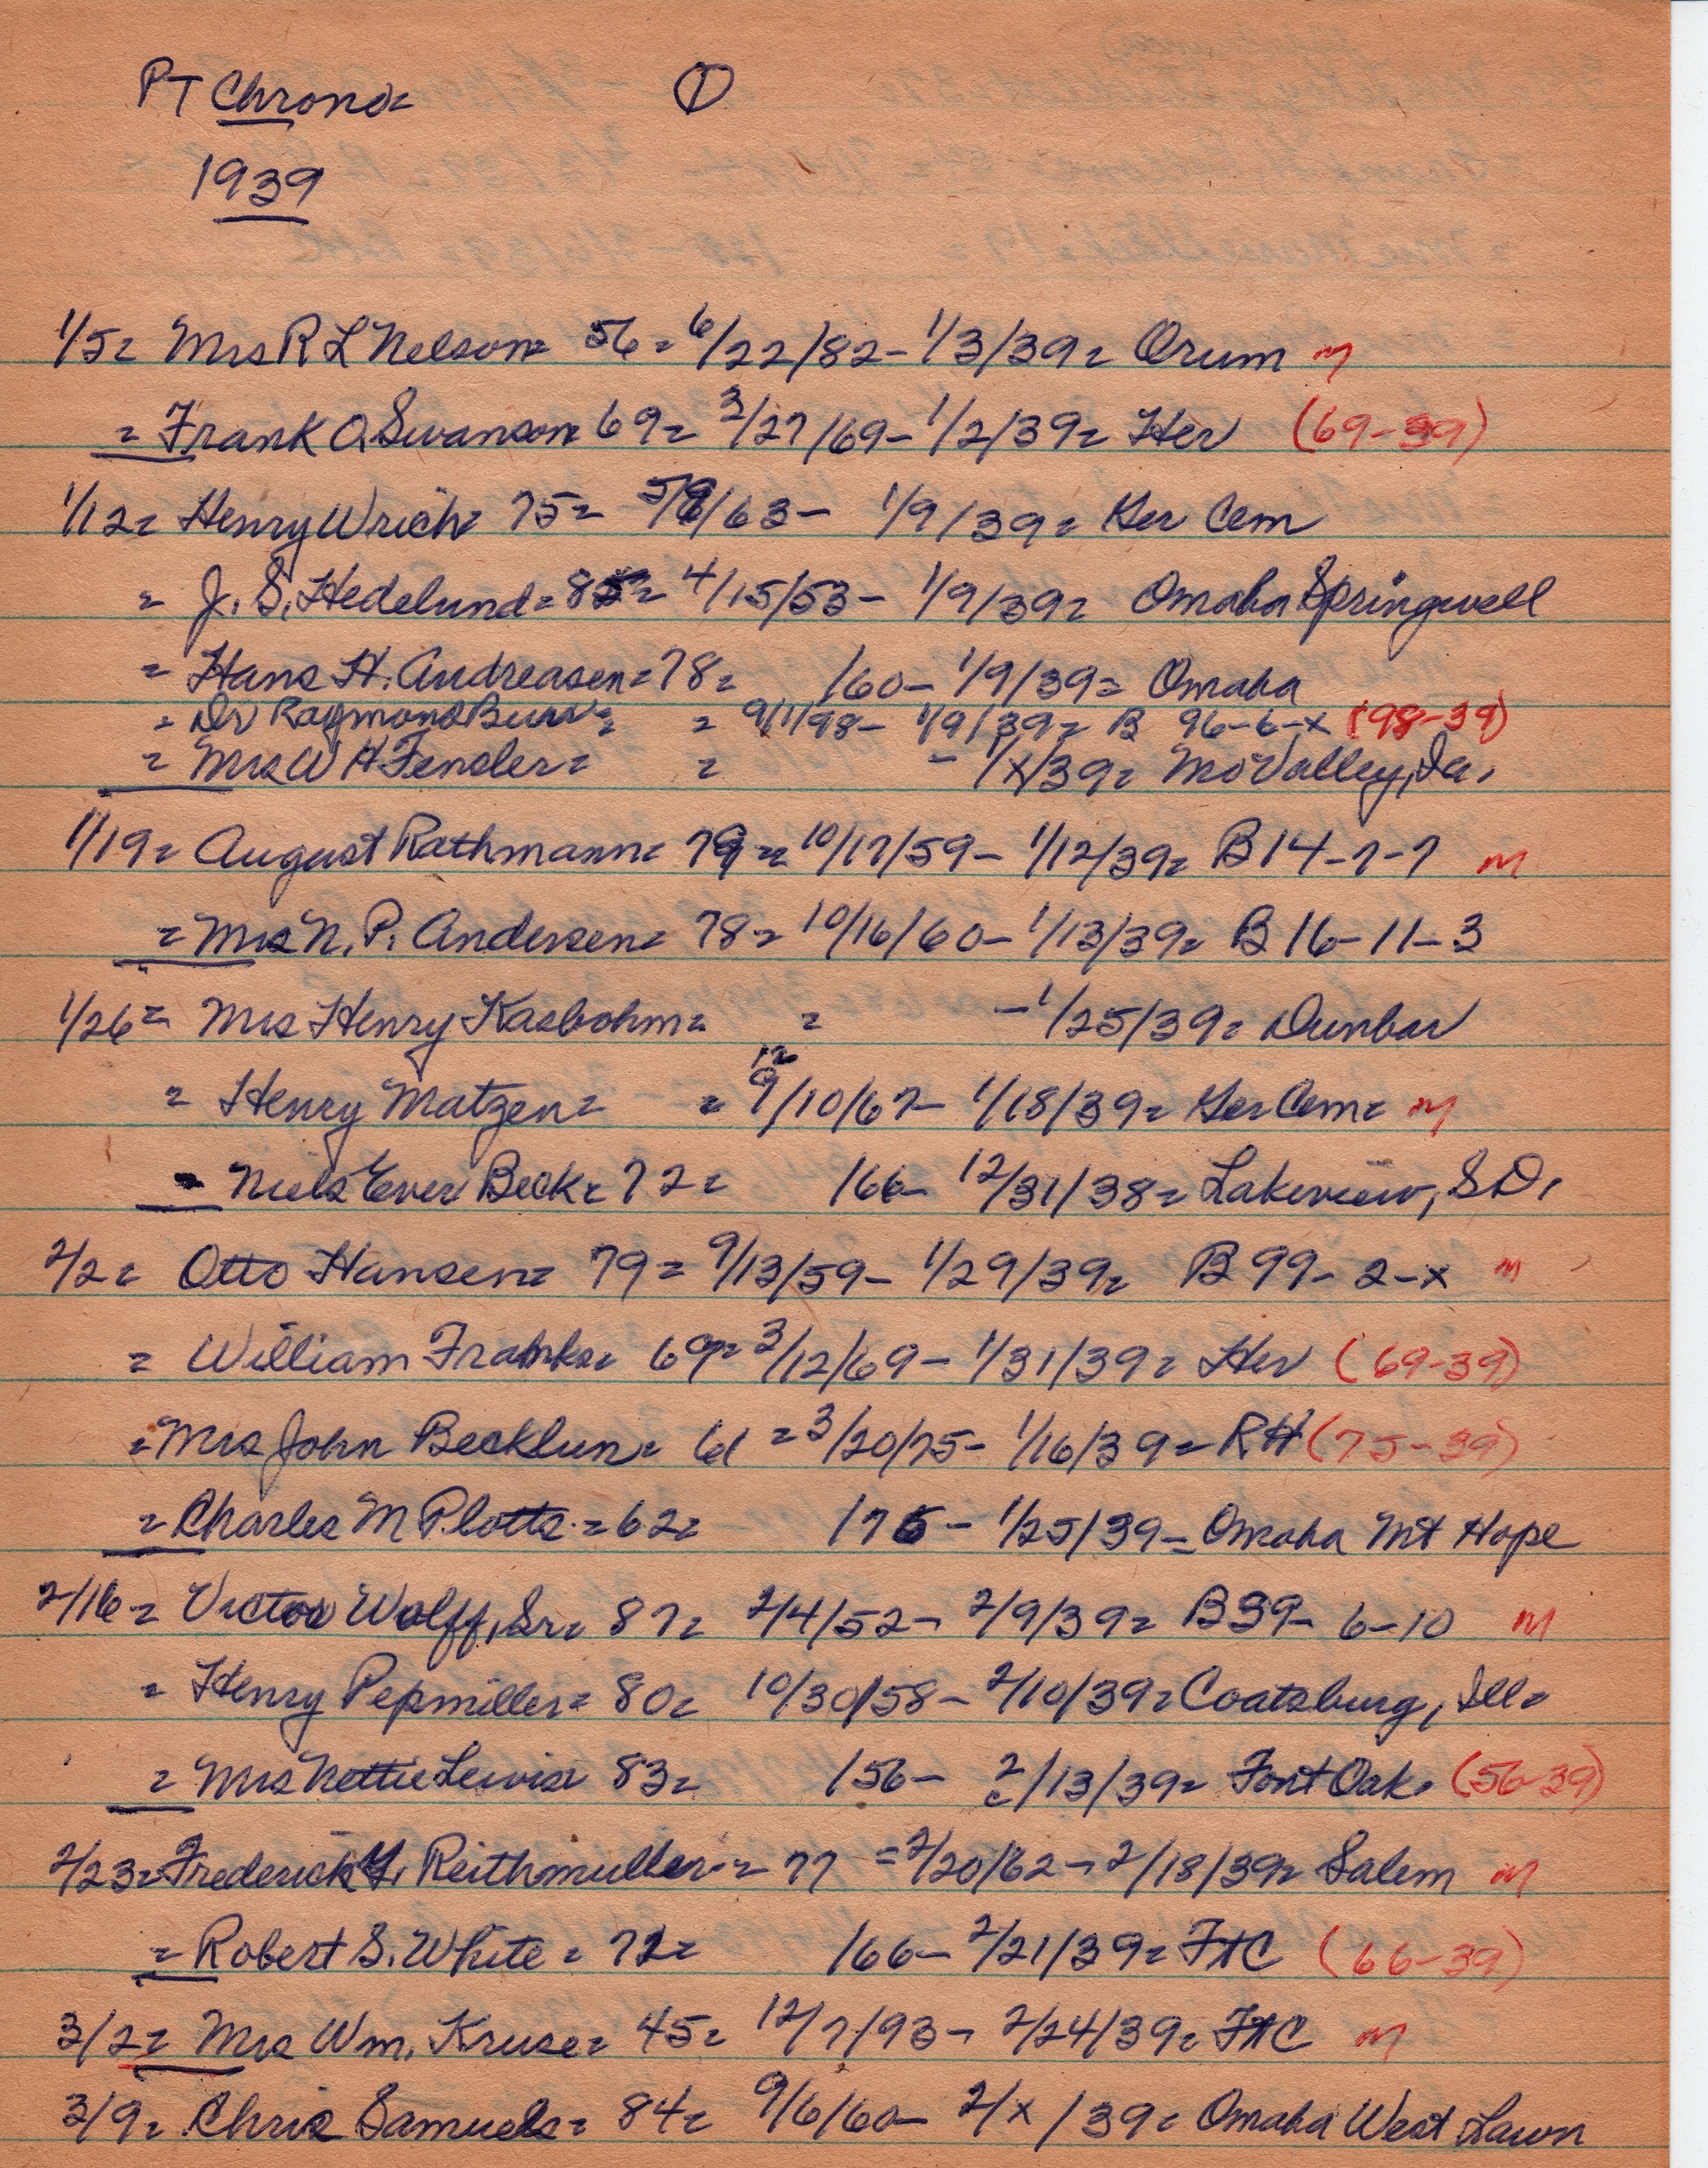 PT Chrono= 1
1939
1/5= Mrs R L Nelson= 56= 6/22/82- 1/3/39= Orum m
= Frank O. Swanson= 69= 3/27/69- 1/2/39= Her (69-39)
1/12= Henry Wrich= 75= 5/9/63- 1/9/39= Ger Cem
= J. S. Hedelund= 85= 4/15/53- 1/9/39= Omaha Springwell
= Hans H. Andreasen= 78= /60- 1/9/39= Omaha
= Dr Raymond Burr= = 9/1/98- 1/9/39= B 96-6-x (98-39)
= Mrs W H Fensler= = - 1/x/39= Mo Valley, Ia.
1/19= August Rathmann= 79= 10/17/59- 1/12/39= B 14-7-7 m
= Mrs N. P. Andersen= 78= 10/16/60- 1/13/39= B 16-11-3
1/26= Mrs Henry Kasbohm= = -1/25/39= Dunbar
12
= Henry Matzen= = 9/10/67- 1/18/39= Ger Cem= m
= Niels Ever Beck= 72= /66- 12/31/38= Lakeview, S.D.
2/2= Otto Hansen= 79= 9/13/59- 1/29/39= B 99-2-x m
= William Frahnks= 69= 3/12/69- 1/31/39= Her (69-39)
= Mrs John Becklun= 61 = 3/20/75- 1/16/39= RH (75-39)
= Charles M Plotts.= 62= /76- 1/25/39= Omaha Mt Hope
2/16= Victor Wolff, Sr= 87= 2/4/52- 2/9/39= B39-6-10 m
= Henry Pepmiller= 80= 10/30/58- 2/10/39= Coatsburg, Ill=
= Mrs Nettie Lewis= 83= /56- 2/13/39= Font Oak. (56-39)
2/23= Frederick Y. Reithmuller.= 77 = 2/20/62- 2/18/39= Salem m
= Robert S. White = 72= /66- 2/21/39= FtC (66-39)
3/2= Mrs Wm. Kruse= 45= 12/7/93- 2/24/39= FtC m
3/9= Chris Samuels= 84= 9/6/60- 2/x/39= Omaha West Lawn